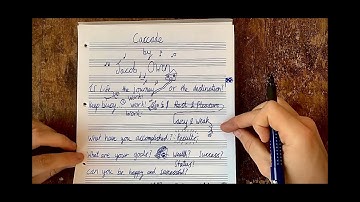 Cascade
by
Jacob Owen
Is Life the Journey or the destination?
Work!
Keep busy work!
Work.
Lazy & Weak
What have you accomplished? Results
What are your goals? Wealth? Success?
Status?
Can you be happy and successful?